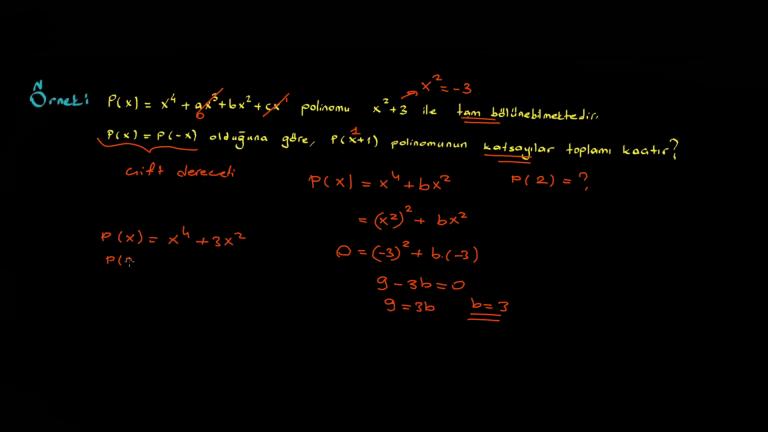 x² = -3
Örnek: P(x) = x⁴ + ax³ + bx² + cx polinomu x² + 3 ile tam bölünebilmektedir.
0
P(x) = P(-x) olduğuna göre, P(x+1) polinomunun katsayılar toplamı kaçtır?
1
çift dereceli
P(x) = x⁴ + bx² P(2) = ?
= (x²)² + bx²
P(x) = x⁴ + 3x²
0 = (-3)² + b.(-3)
P(
9 - 3b = 0
9 = 3b b = 3